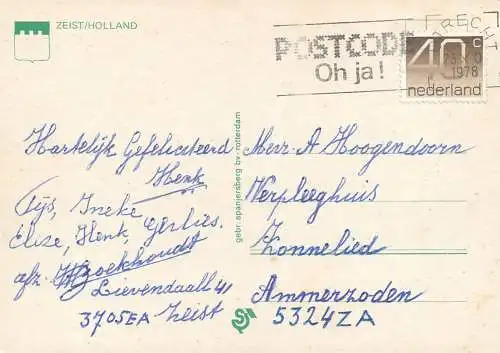 ZEIST/HOLLAND
UTRECHT
POSTCODE
Oh ja!
1978
40c
nederland
Hartelijk Gefeliciteerd
Henk
Tijs, Ineke
Elize, Henk, Gerlies.
afz.
Lievendaall 41
3705EA Zeist
gebr. spanjersberg bv. rotterdam
Merr. A Hoogendoorn
Verpleeghuis
Zonnelied
Ammerzoden
5324ZA